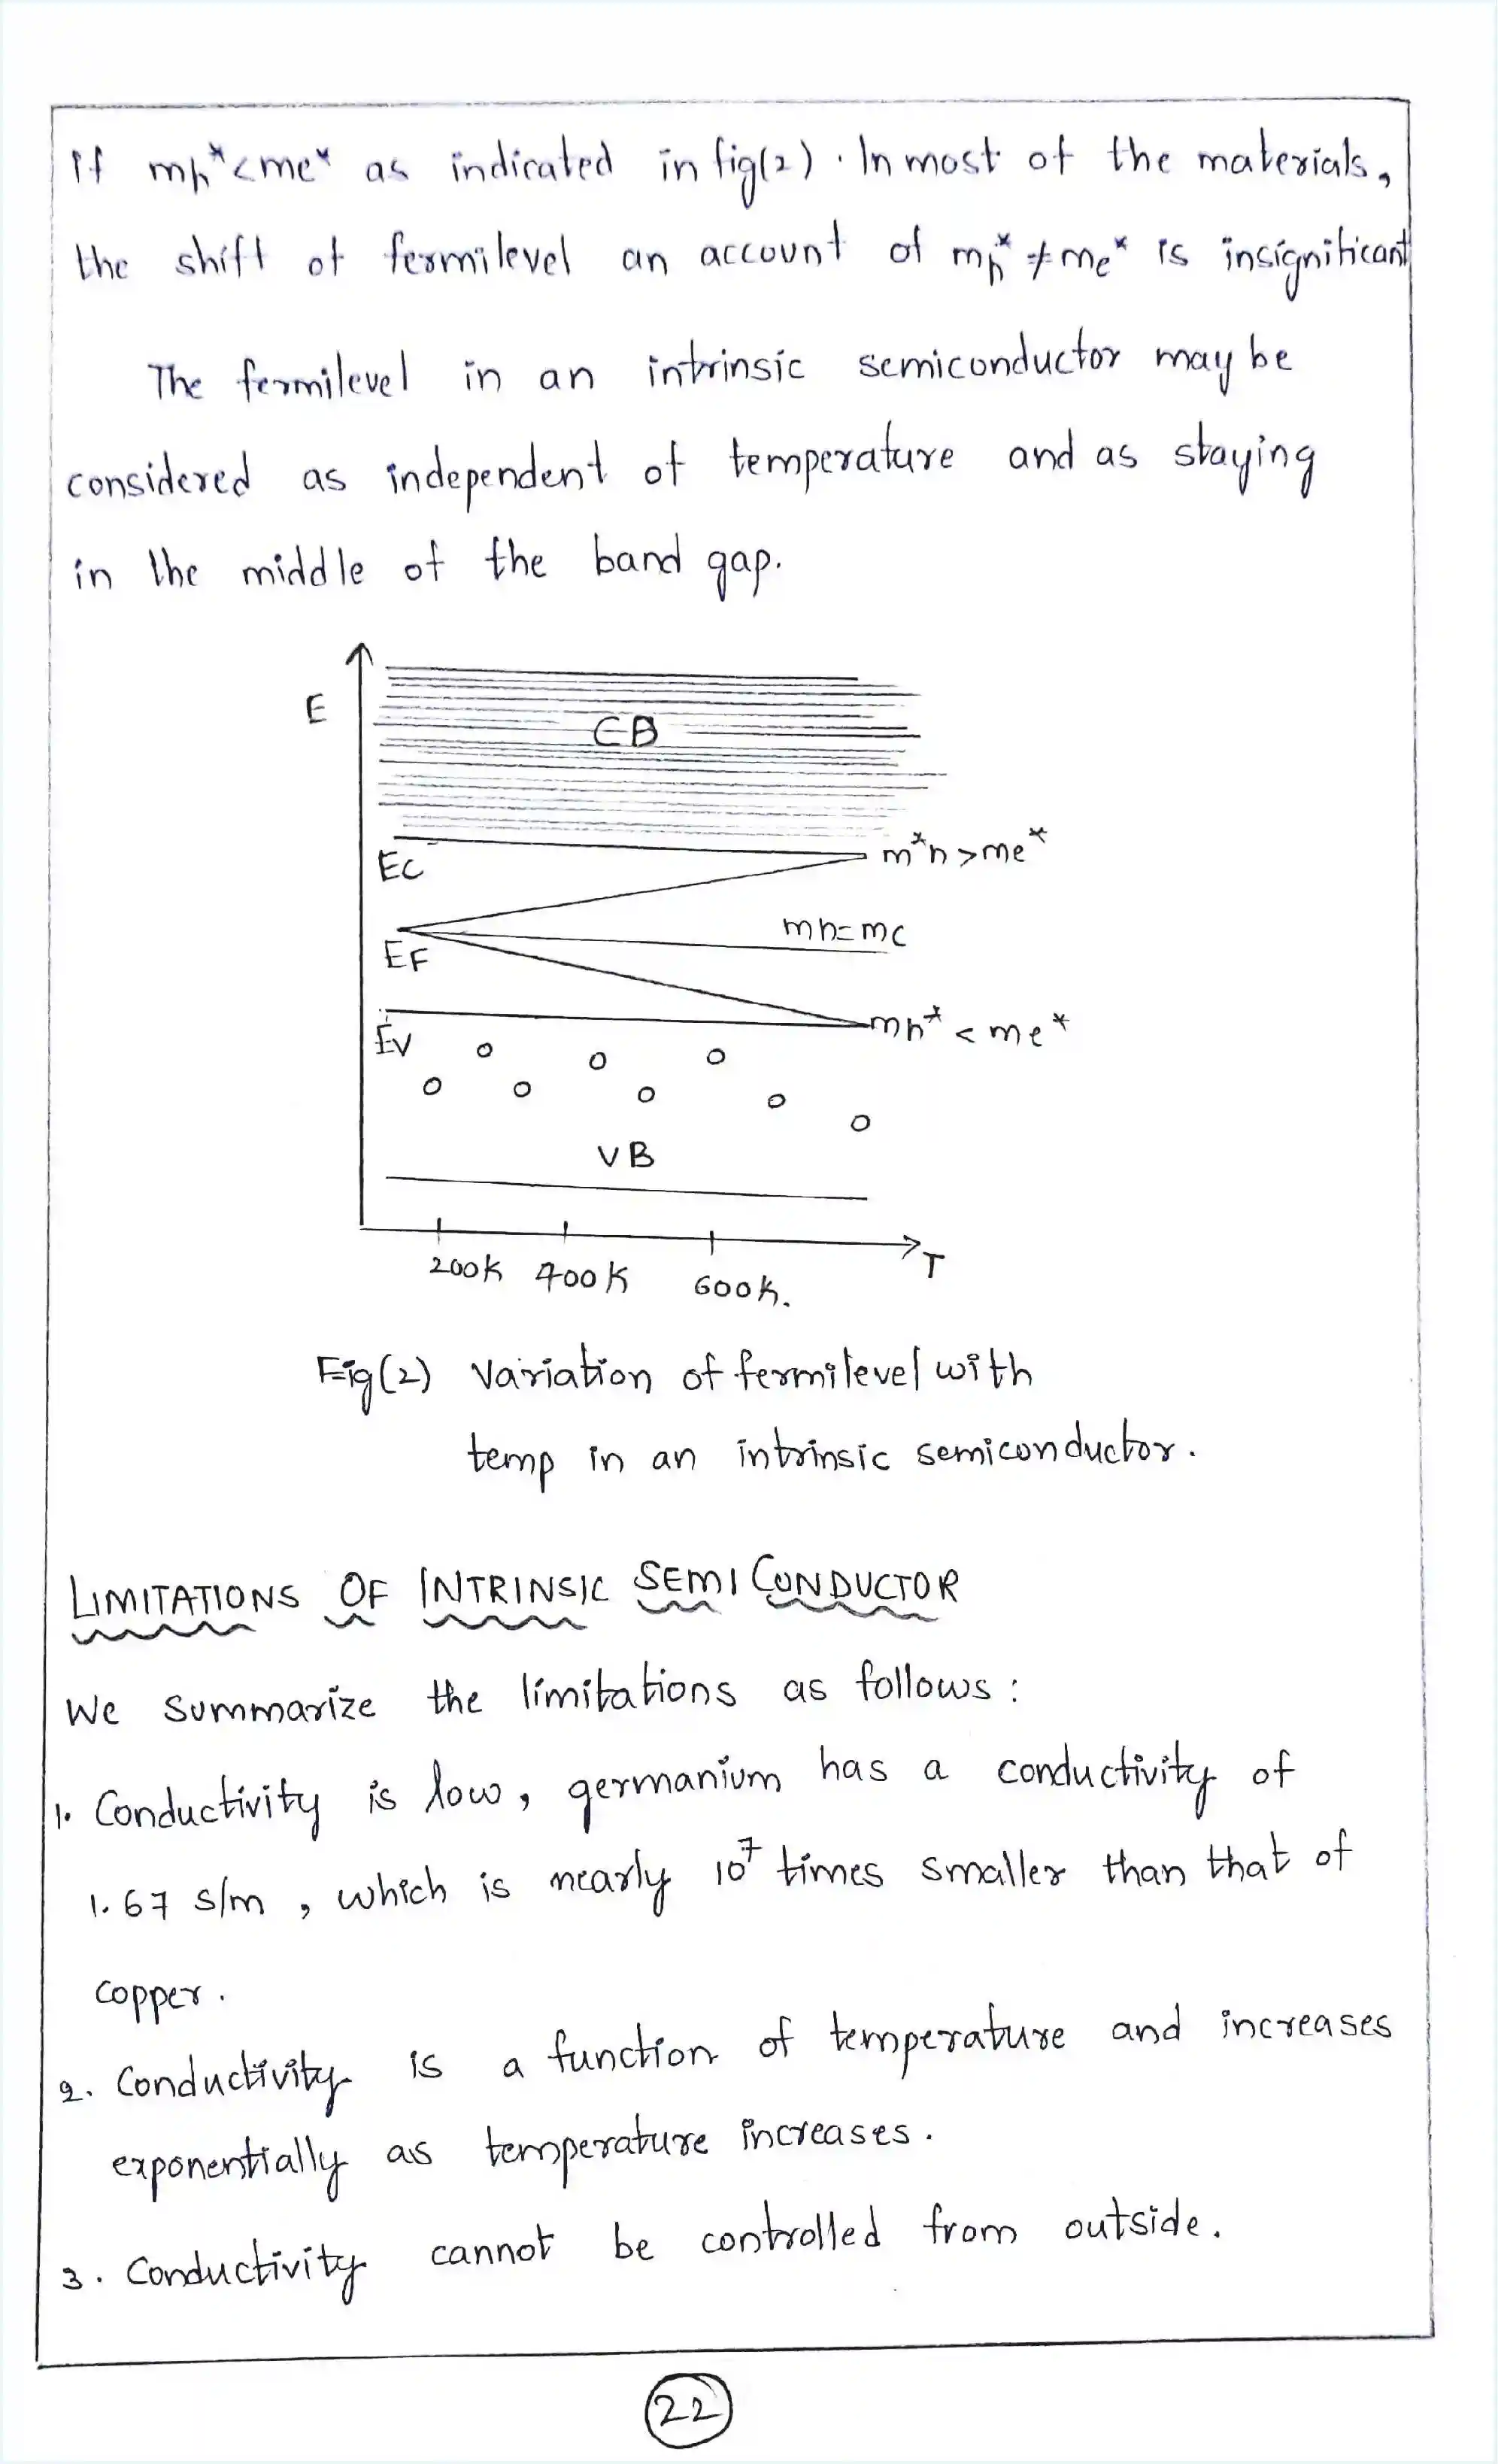 If mh* < me* as indicated in fig(2). In most of the materials,
the shift of fermilevel an account of mh* ≠ me* is insignificant
The fermilevel in an intrinsic semiconductor may be
considered as independent of temperature and as staying
in the middle of the band gap.
E
CB
EC
m*h > me*
mh = mc
EF
mh* < me*
EV
VB
200K 400K 600K.
T
Fig(2) Variation of fermilevel with
temp in an intrinsic semiconductor.
LIMITATIONS OF INTRINSIC SEMI CONDUCTOR
We summarize the limitations as follows:
1. Conductivity is low, germanium has a conductivity of
1.67 s/m, which is nearly 10⁷ times smaller than that of
copper.
2. Conductivity is a function of temperature and increases
exponentially as temperature increases.
3. Conductivity cannot be controlled from outside.
22